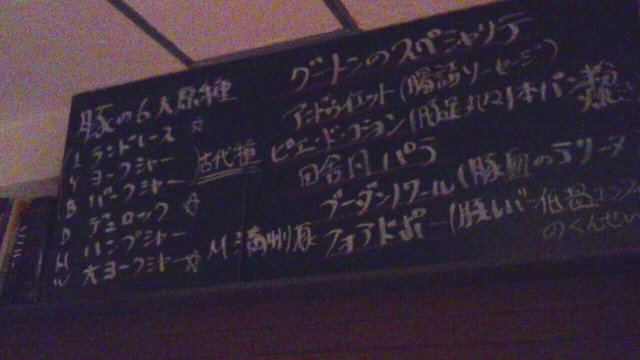 豚の6大原種
L ランドレース ☆
Y ヨークシャー
B バークシャー
古代種
D デュロック ☆
H ハンプシャー
W 大ヨークシャー ☆
M 満州豚
グートンのスペシャリテ
アンドゥイエット(腸詰ソーセージ)
ピエ・ド・コション(豚足丸々1本パン粉
田舎風パテ
ブーダンノワール(豚血のテリーヌ
フォアドポー(豚レバー低温コンフィ
のくんせい